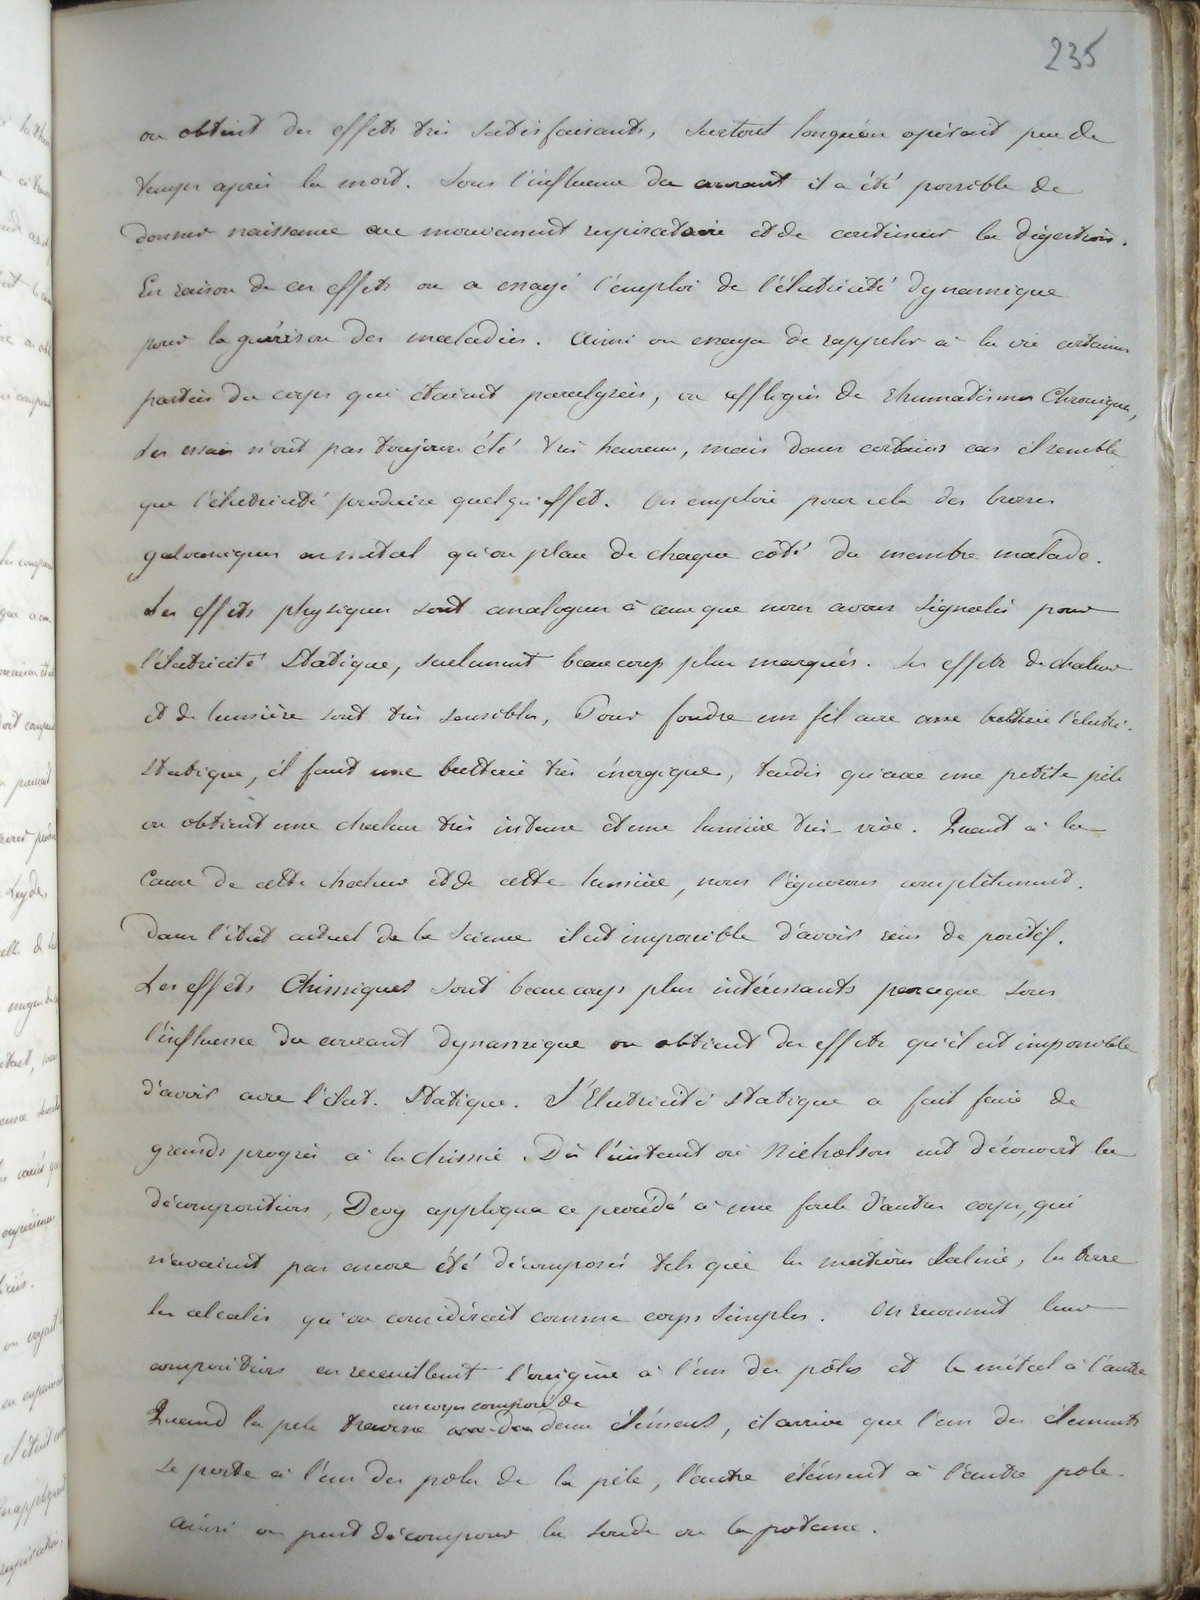 235
on obtint des effets très satisfaisants, surtout lorsqu'on opérait peu de
temps après la mort. Sous l'influence du courant il a été possible de
donner naissance au mouvement respiratoire et de continuer la digestion.
En raison de ces effets on a essayé l'emploi de l'électricité dynamique
pour la guérison des maladies. Ainsi on essaya de rappeler à la vie certaines
parties du corps qui étaient paralysées, ou affligées de rhumatismes Chronique,
Les essais n'ont pas toujours été très heureux, mais dans certains cas il semble
que l'électricité produise quelqu'effet. On emploie pour cela des
galvaniques en métal qu'on place de chaque côté du membre malade.
Les effets physiques sont analogues à ceux que nous avons signalés pour
l'électricité Statique, seulement beaucoup plus marqués. Les effets de chaleur
et de lumière sont très sensibles, Pour fondre un fil avec une batterie l'électri.
Statique, il faut une batterie très énergique, tandis qu'avec une petite pile
on obtient une chaleur très intense et une lumière très-vive. Quant à la
Cause de cette chaleur et de cette lumière, nous l'ignorons complètement.
dans l'état actuel de la Science il est impossible d'avoir rien de positif.
Les effets Chimiques sont beaucoup plus intéressants parceque sous
l'influence du courant dynamique on obtient des effets qu'il est impossible
d'avoir avec l'état. Statique. L'Electricité statique a fait faire de
grands progrès à la chimie. Dès l'instant où Nicholson eut découvert la
décomposition, Davy appliqua ce procédé à une foule d'autres corps, qui
n'avaient pas encore été décomposés tels que les matières Saline, la terre
les alcalis qu'on considérait comme corps simples. On reconnut leur
composition en recueillant l'oxigène à l'un des pôles et le métal à l'autre
un corps composé de
Quand la pile traverse deux éléments, il arrive que l'un des éléments
se porte à l'un des poles de la pile, l'autre élément à l'autre pole.
Ainsi on peut décomposer la soude ou la potasse.